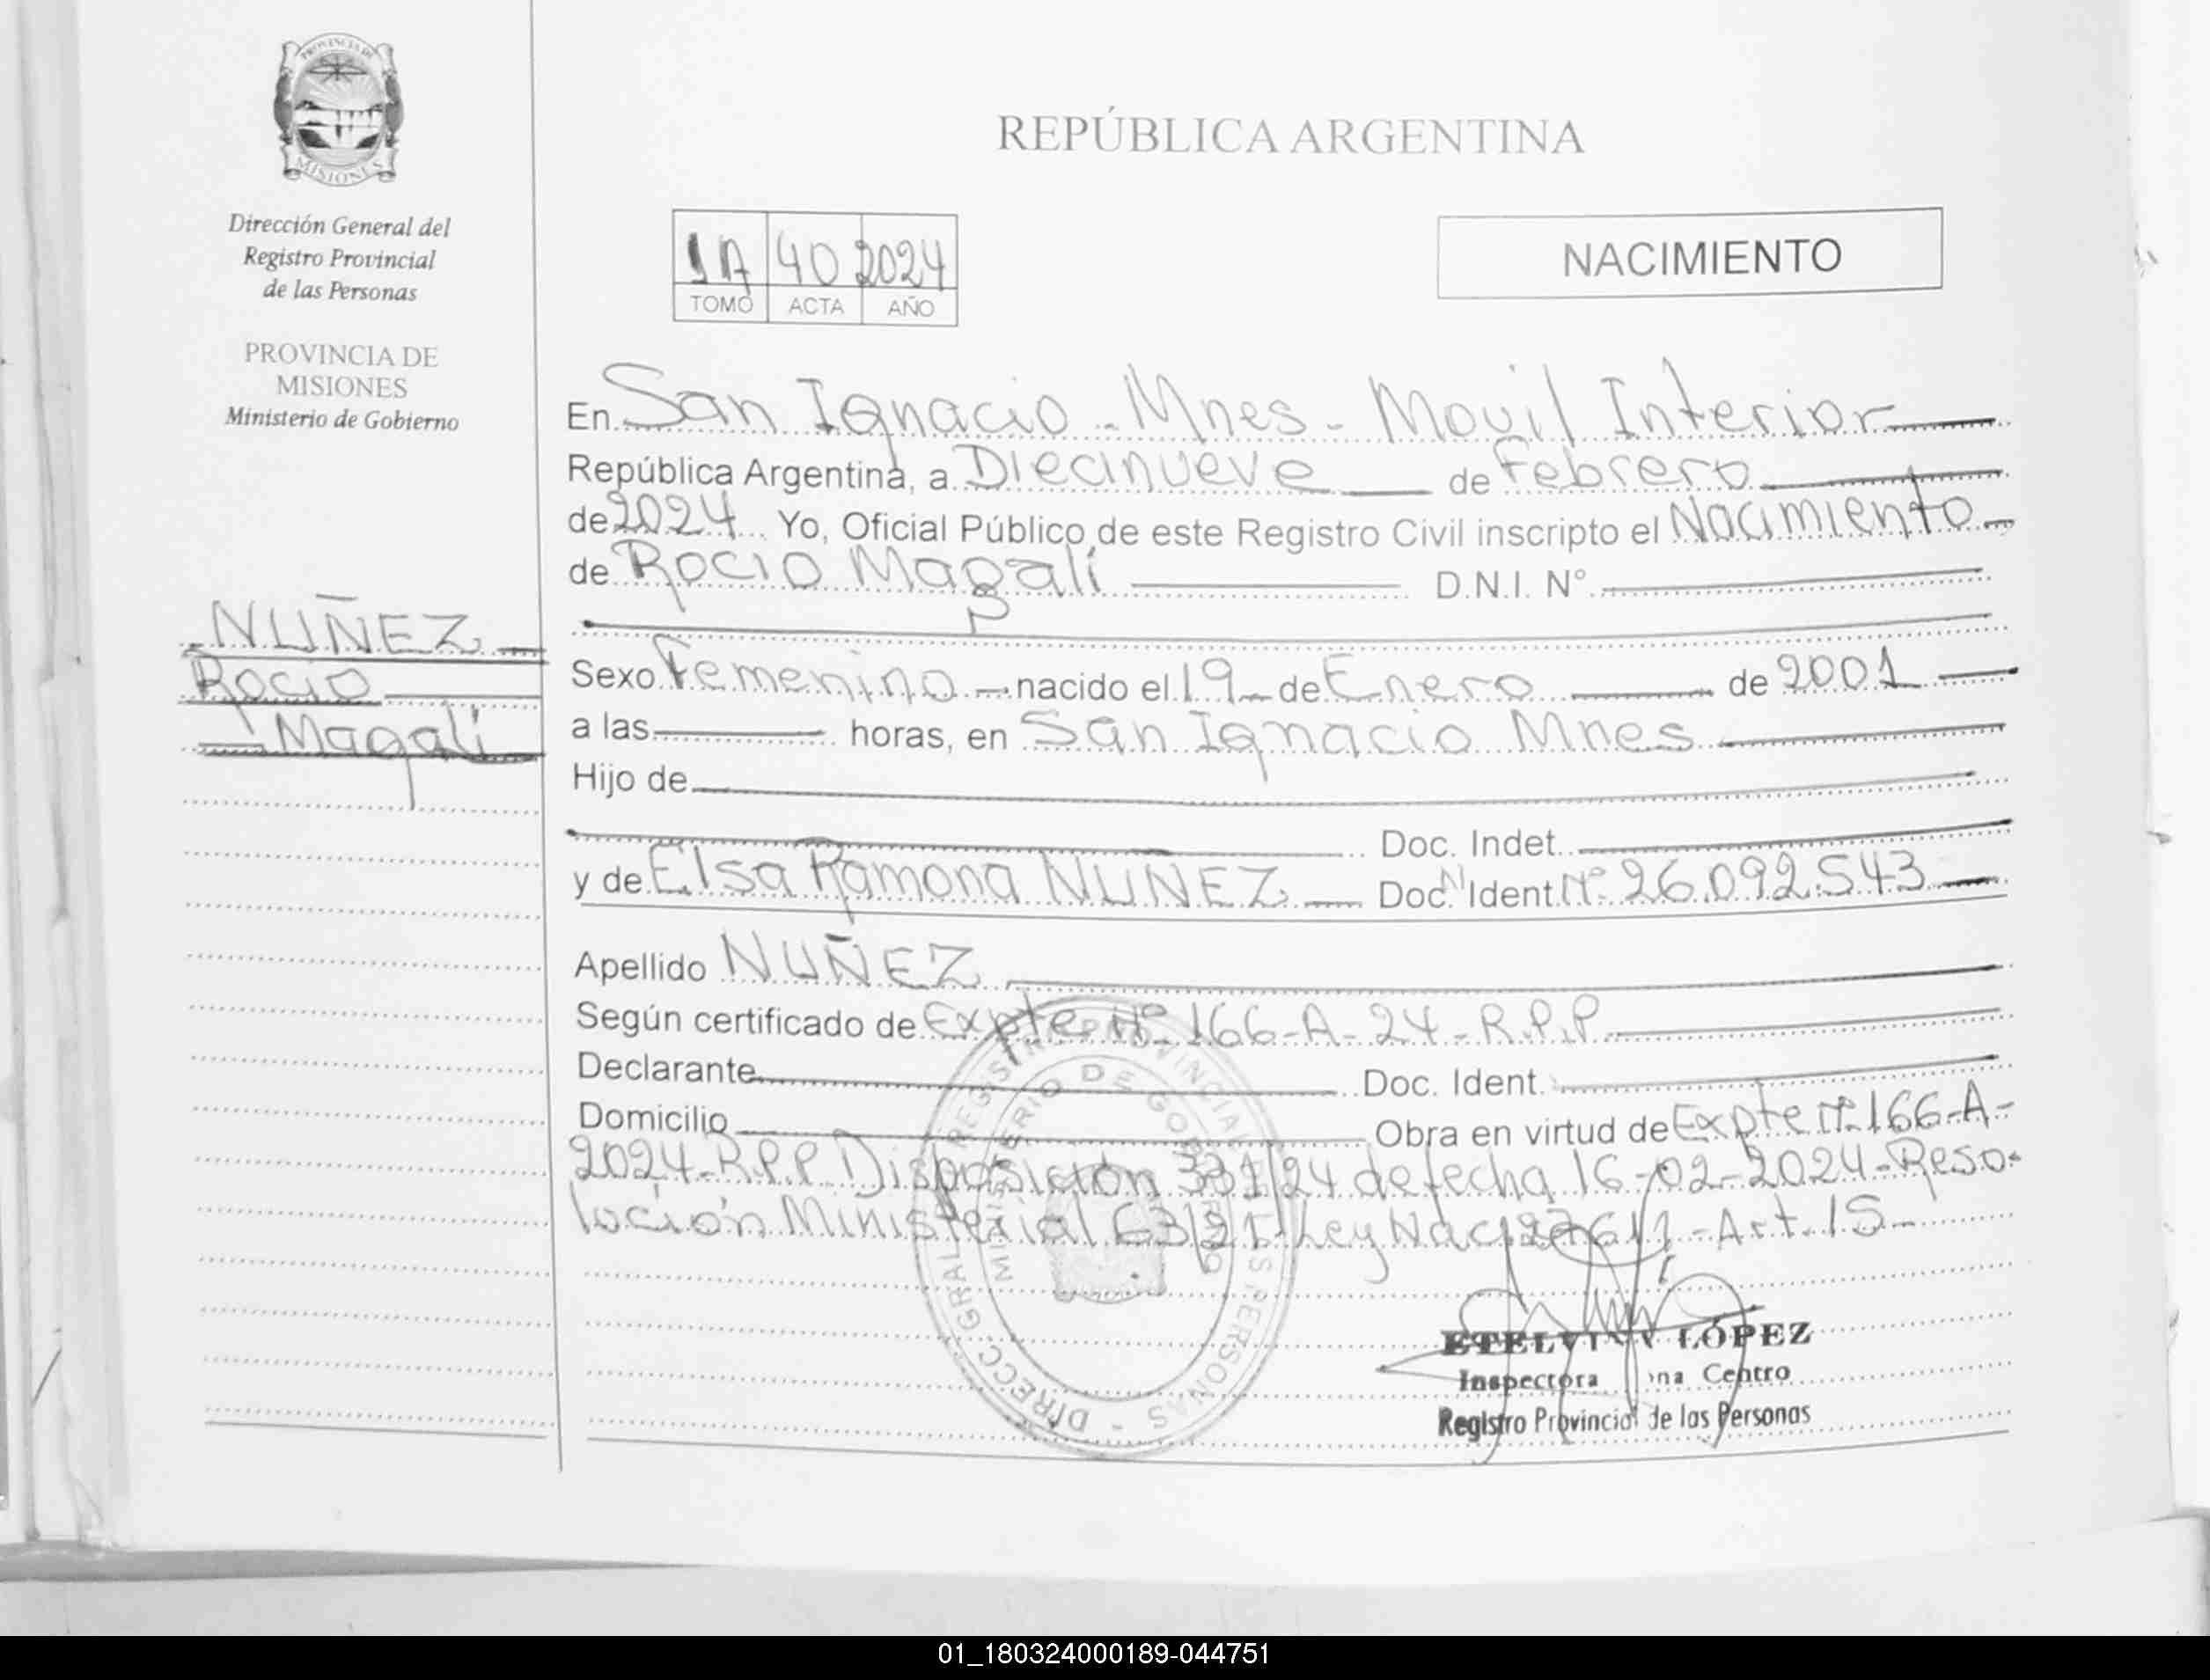 PROVINCIA DE
MISIONES
Dirección General del
Registro Provincial
de las Personas
PROVINCIA DE
MISIONES
Ministerio de Gobierno
NUÑEZ
Rocio
Magalí
REPÚBLICA ARGENTINA
1A 40 2024
TOMO ACTA AÑO
NACIMIENTO
En San Ignacio - Mnes - Movil Interior
República Argentina, a Diecinueve de Febrero
de 2024 Yo, Oficial Público de este Registro Civil inscripto el Nacimiento
de Rocio Magalí D.N.I. N°
Sexo Femenino nacido el 19 de Enero de 2001
a las horas, en San Ignacio Mnes
Hijo de
Doc. Indet.
y de Elsa Ramona NUNEZ Doc. Ident. N° 26.092.543
Apellido NUÑEZ
Según certificado de Expte N° 166-A-24-R.P.P
Declarante Doc. Ident.
Domicilio Obra en virtud de Expte N° 166-A-
2024-R.P.P Disposición 331/24 de fecha 16-02-2024-Reso-
lución Ministerial 63/21-Ley Nac. 27611-Art. 15
DIRECC. GRAL. REGISTRO PROVINCIAL DE LAS PERSONAS -
MINISTERIO DE GOBIERNO
LÓPEZ
Inspectora Centro
Registro Provincial de las Personas
01_180324000189-044751